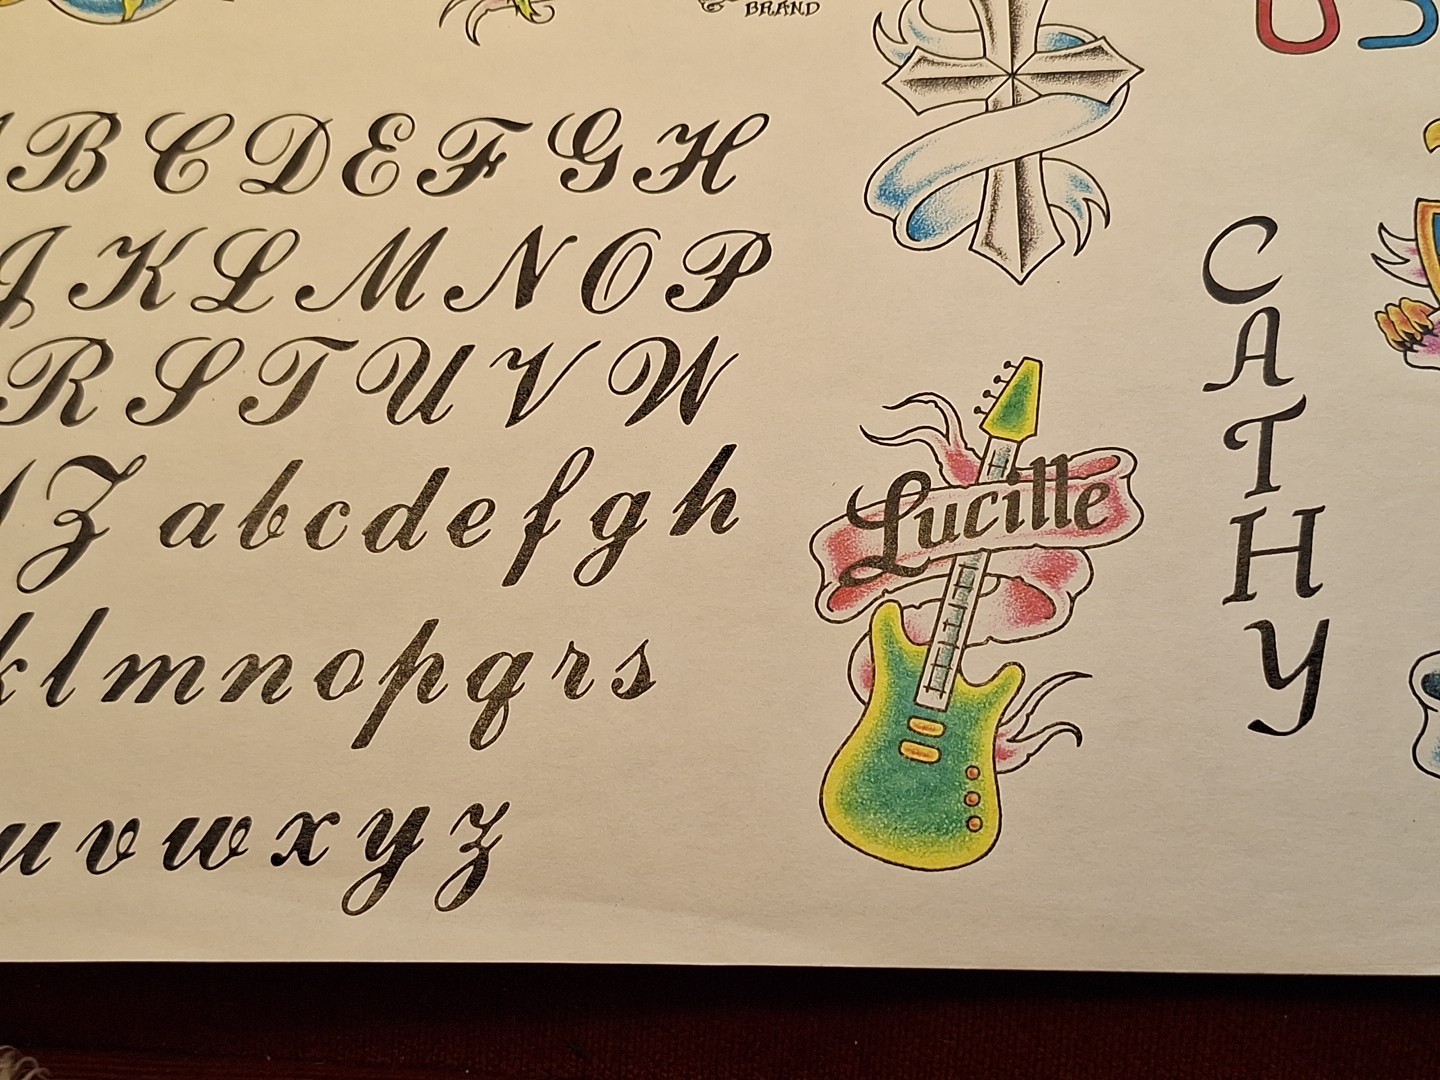 BRAND
B C D E F G H
J K L M N O P
R S T U V W
Z a b c d e f g h
k l m n o p q r s
u v w x y z
Lucille
C
A
T
H
Y